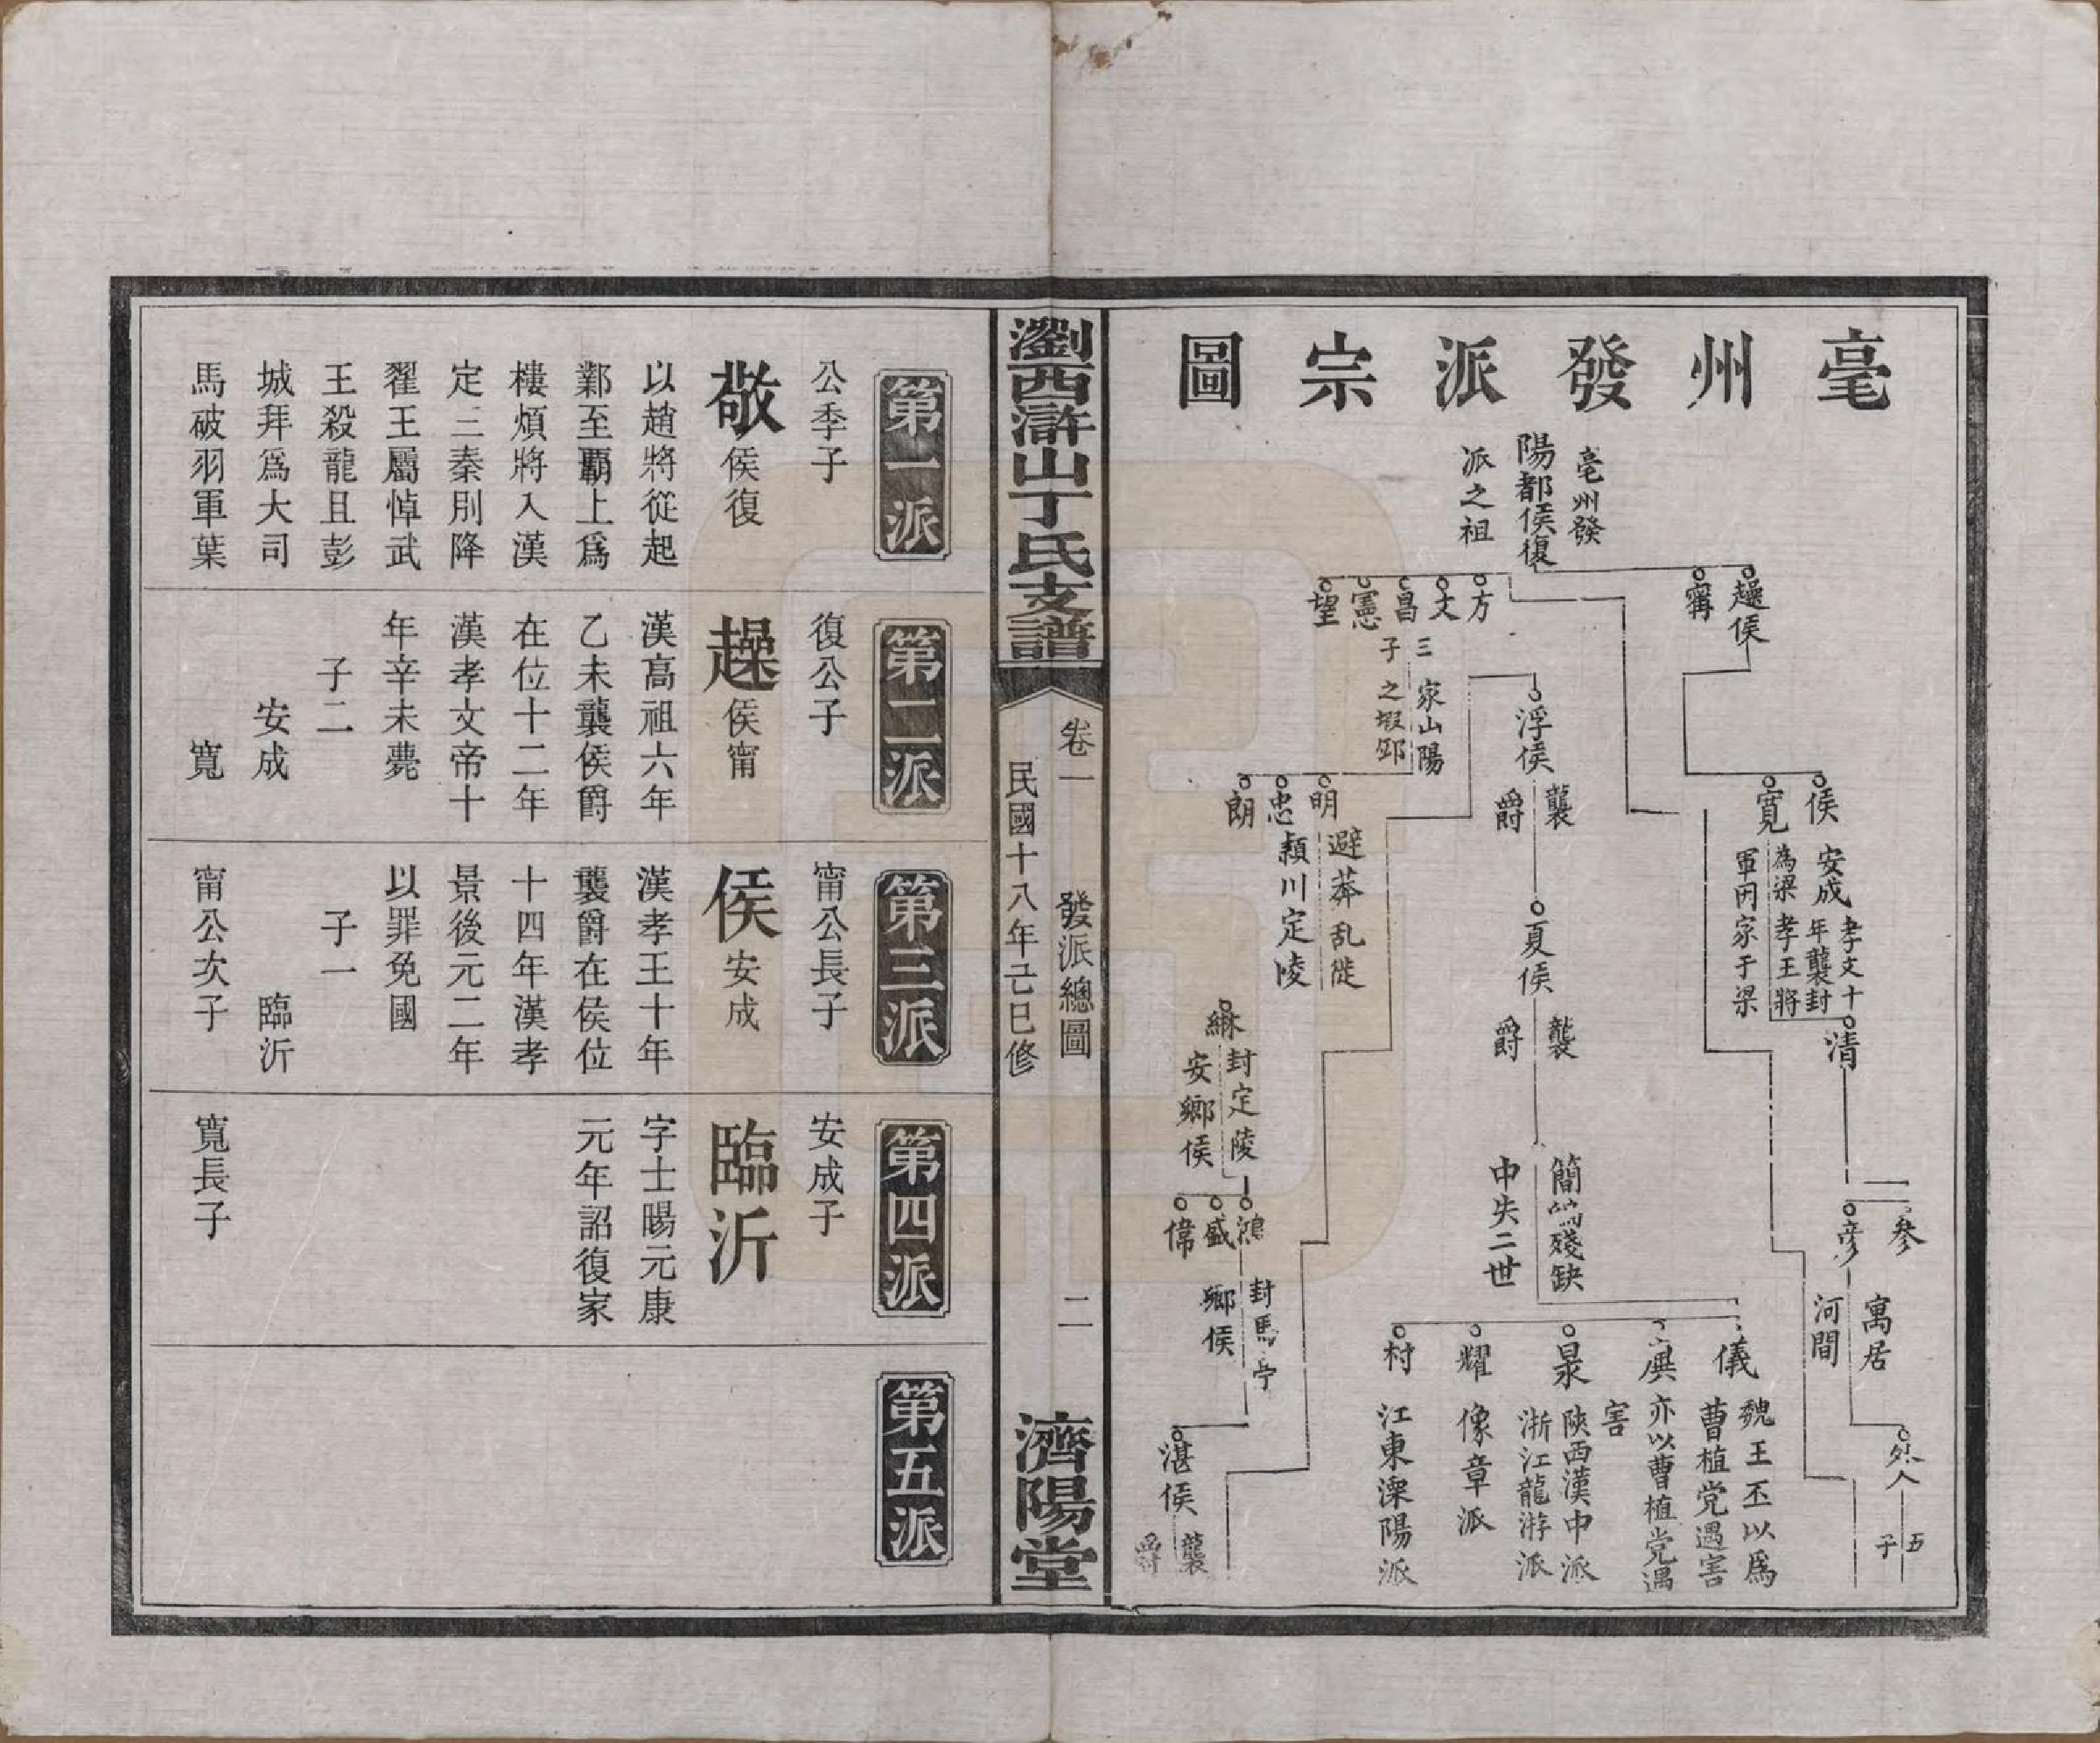 毫州發派宗圖
亳州發
陽都侯復
派之祖
趮侯
甯
方
文
昌
憲
望
三
子
家山陽
之塅邱
浮侯
襲
爵
侯
寬
安成
孝文十
年襲封
為梁孝王將
軍因家于梁
明
忠
朗
避莽乱徙
潁川定陵
夏侯
襲
爵
清
綝
封定陵
安鄉侯
簡端殘缺
中失二世
二
參
彥
寓居
河間
鴻
盛
偉
封馬亭
鄉侯
儀
魏王丕以爲
曹植党遇害
廙
亦以曹植党遇
害
泉
陝西漢中派
浙江龍游派
耀
像章派
村
江東溧陽派
外人
五
子
湛侯
襲
爵
瀏西滸山丁氏支譜
卷一
發派總圖
二
民國十八年己巳修
濟陽堂
第一派
公季子
敬侯復
以趙將從起
鄴至霸上爲
樓煩將入漢
定三秦別降
翟王屬悼武
王殺龍且彭
城拜爲大司
馬破羽軍葉
第二派
復公子
趮侯甯
漢高祖六年
乙未襲侯爵
在位十二年
漢孝文帝十
年辛未薨
子二
安成
寬
第三派
甯公長子
侯安成
漢孝王十年
襲爵在侯位
十四年漢孝
景後元二年
以罪免國
子一
臨沂
甯公次子
第四派
安成子
臨沂
字士暘元康
元年詔復家
寬長子
第五派